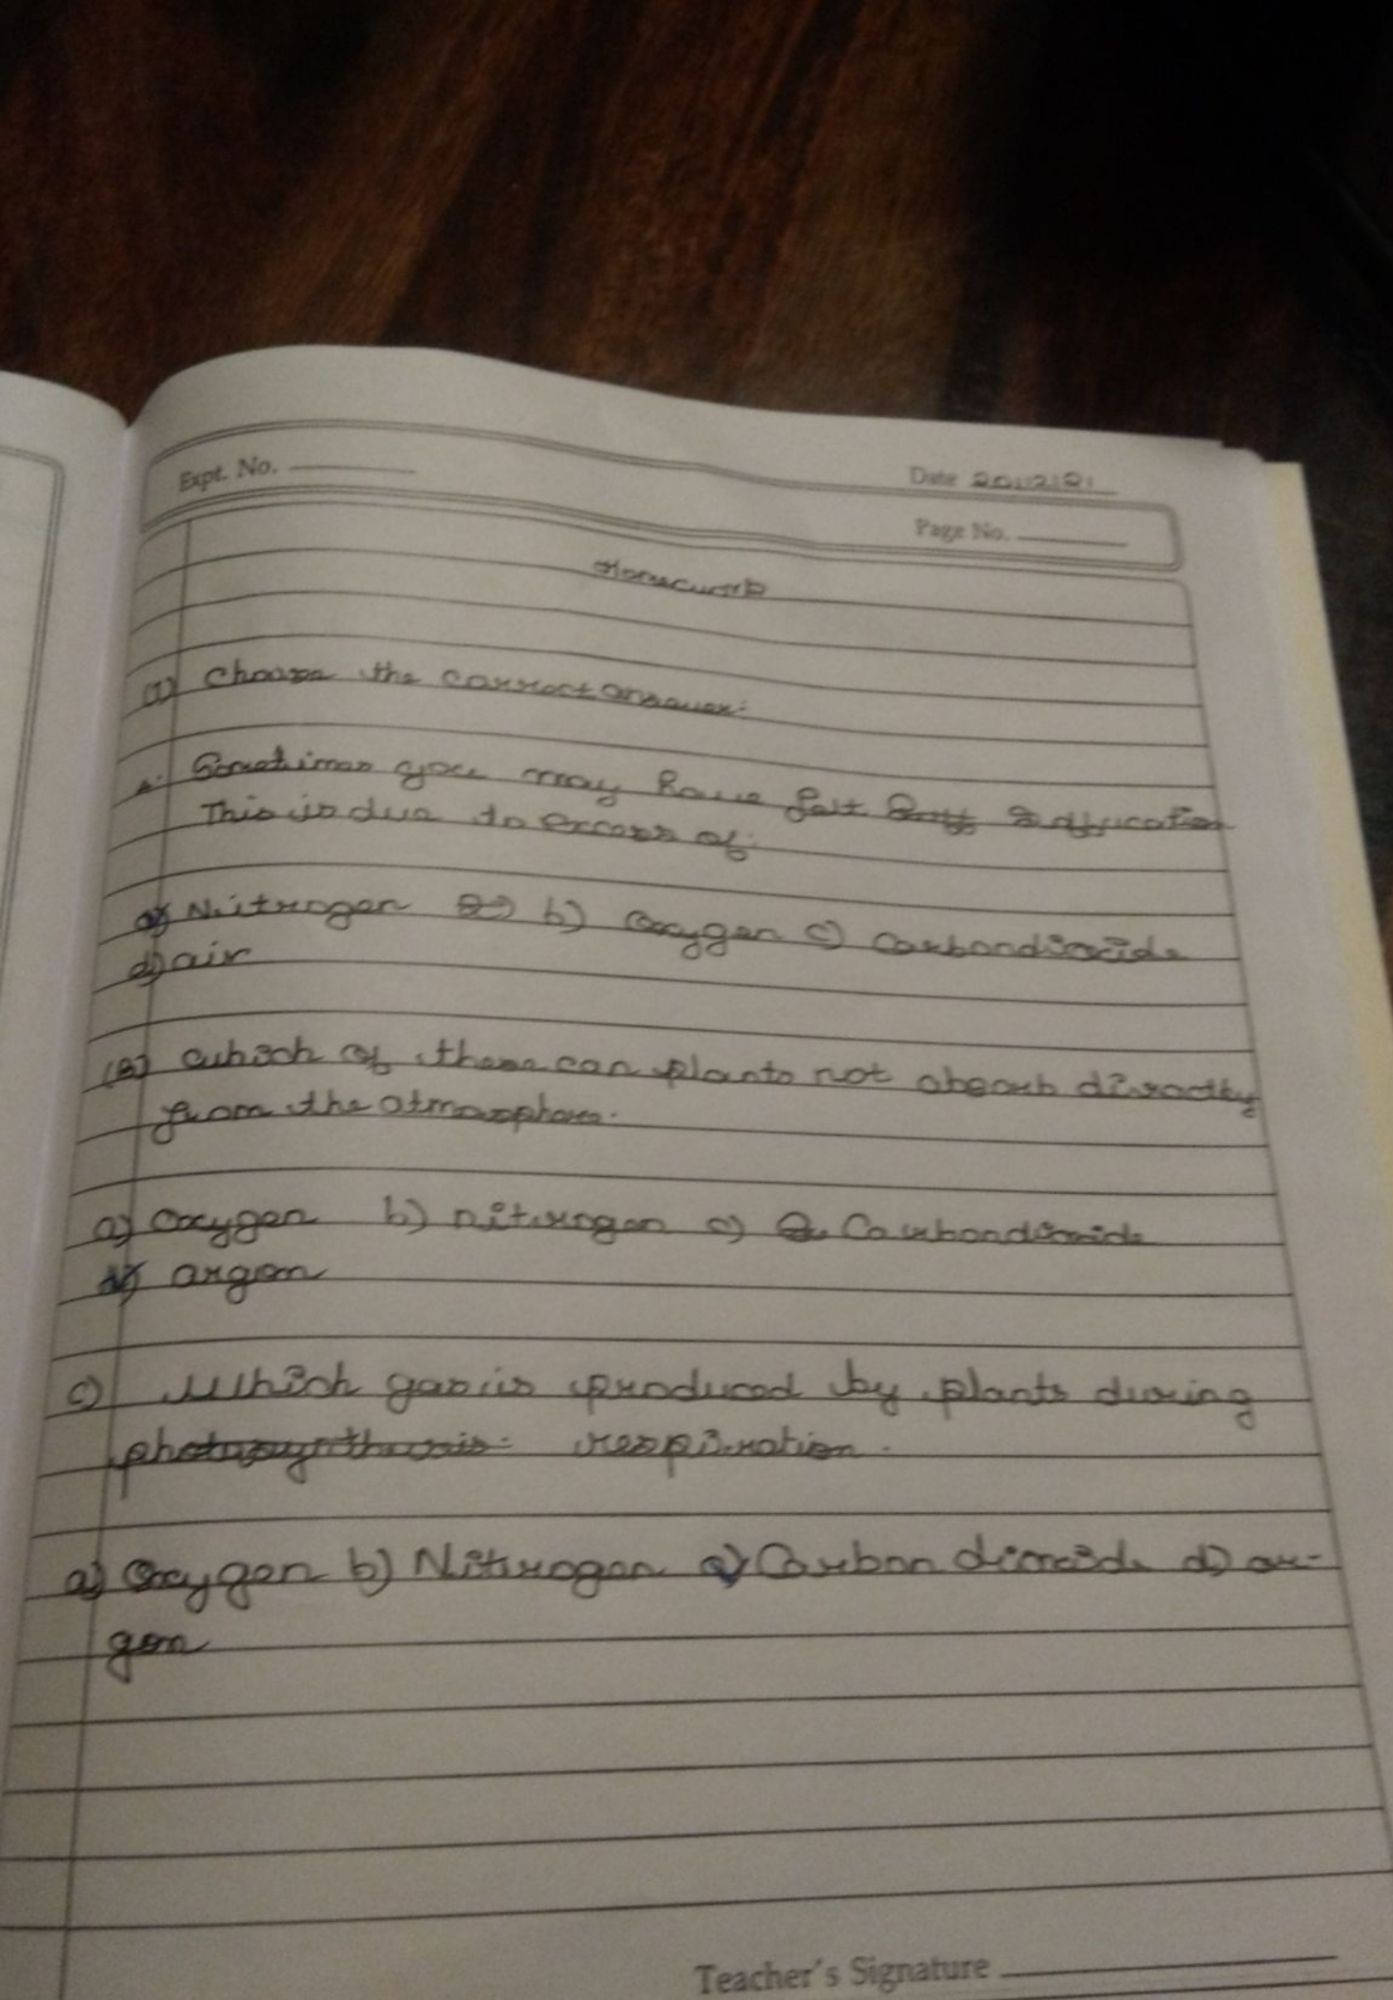 Expt. No.
Date 20112121
Page No.
Homework
(1) Choose the correct answer:
A. Sometimes you may have felt suffucation
This is due to excess of:
a) Nitrogen b) Oxygen c) Carbondioxide
d) air
(B) which of these can plants not absorb directly
from the atmosphere.
a) Oxygen b) nitrogen c) Carbondioxide
d) argon
c) Which gas is produced by plants during
photosynthesis: respiration.
a) Oxygen b) Nitrogen c) Carbon dioxide d) ar-
gon
Teacher's Signature